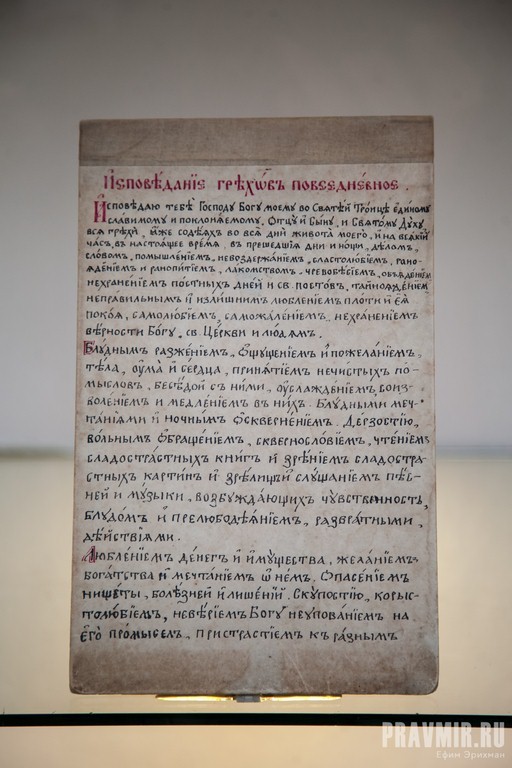 И҆сповѣ́данїе грѣхѡ́въ повседне́вное.
И҆сповѣдаю тебѣ̀ Господу Богу моему во Святѣ́й Тро́ицѣ е҆ди́ному
и҆славимому и поклонѧемому. Ѻтцу и҆ Сы́ну, и҆ Свято́му Ду́ху
всѧ̀ грѣхѝ, ꙗ҆̀же содѣѧхъ во всѧ̀ дни̑ живота̀ моего̀, и҆ на всѧ́кїй
ча́съ, въ настоѧщее вре́мѧ, въ преше́дшїѧ дни и но́щи, дѣ́ломъ,
сло́вомъ, помышле́нїемъ, невоздержа́нїемъ, сластолю́бїемъ, рано-
ꙗде́нїемъ и ранопитїемъ, лакомствомъ, чревобѣ́сїемъ, объꙗде́нїемъ
нехране́нїемъ по́стныхъ дне́й и св. посто́въ, тайноꙗде́нїемъ
неправильнымъ и҆ и҆злишнимъ любле́нїемъ пло́ти и҆ еѧ̀
поко́ѧ, самолю́бїемъ, саможале́нїемъ, нехране́нїемъ
вѣ́рности Бо́гу, св. Це́ркви и лю́дѧмъ.
Блу́днымъ разже́нїемъ, ѻщуще́нїемъ и҆ пожела́нїемъ,
тѣ́ла, ѹма̀ и҆ се́рдца, принѧ́тїемъ нечи́стыхъ по-
мысловъ, бесѣ́дой съ ни́ми, ѹслажде́нїемъ, соиз-
воле́нїемъ и медле́нїемъ въ нихъ. Блу́дными меч-
та́нїѧми и҆ ночны́мъ ѻскверне́нїемъ. Де́рзостїю,
во́льнымъ ѻбраще́нїемъ, скверносло́вїемъ, чте́нїемъ
сладостра́стныхъ кни́гъ и҆ зрѣ́нїемъ сладостра-
стныхъ карти́нъ и҆ зрѣ́лищъ и҆ слу́шанїемъ пѣ́с-
ней и му́зыки, возбужда́ющихъ чу́вственность,
блудо́мъ и҆ прелюбодѣѧ́нїемъ, развра́тными
дѣ́йствїѧми.
Любле́нїемъ де́негъ и҆ и҆му́щества, жела́нїемъ
бога́тства и҆ мечта́нїемъ ѡ҆ не́мъ. Ѻпасе́нїемъ
нищеты̀, болѣ́зней и҆ лише́нїй. Ску́постїю, корыс-
толю́бїемъ, невѣ́рїемъ Богу неупова́нїемъ на
Є҆гѡ̀ про́мыселъ, пристра́стїемъ къ ра́знымъ
PRAVMIR.RU
Ефим Эрихман